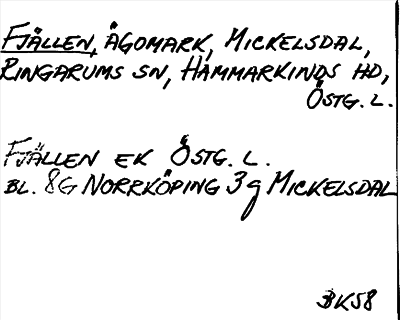 FJÄLLEN, ÄGOMARK, MICKELSDAL,
RINGARUMS SN, HAMMARKINDS HD,
ÖSTG. L.
FJÄLLEN EK ÖSTG. L.
BL. 8G NORRKÖPING 3g MICKELSDAL
BK58